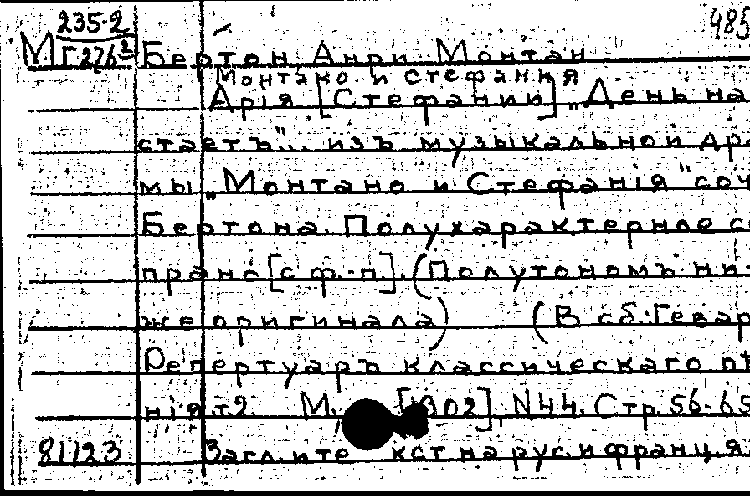 235-2 485
М Г276² Бертон, Анри Монтан
Монтано и Стефания
Арiя [Стефании] „День на
стаетъ"... изъ музыкальной дра
мы „Монтано и Стефанiя" соч
Бертона. Полухарактерное со
прано [с ф.-п]. (Полутономъ ни-
же оригинала) (В сб: Гевар
Репертуаръ классическаго пѣ
нiя т2. М., [1902], N44. Стр. 56-65
81123 Загл. и текст на рус. и франц. я